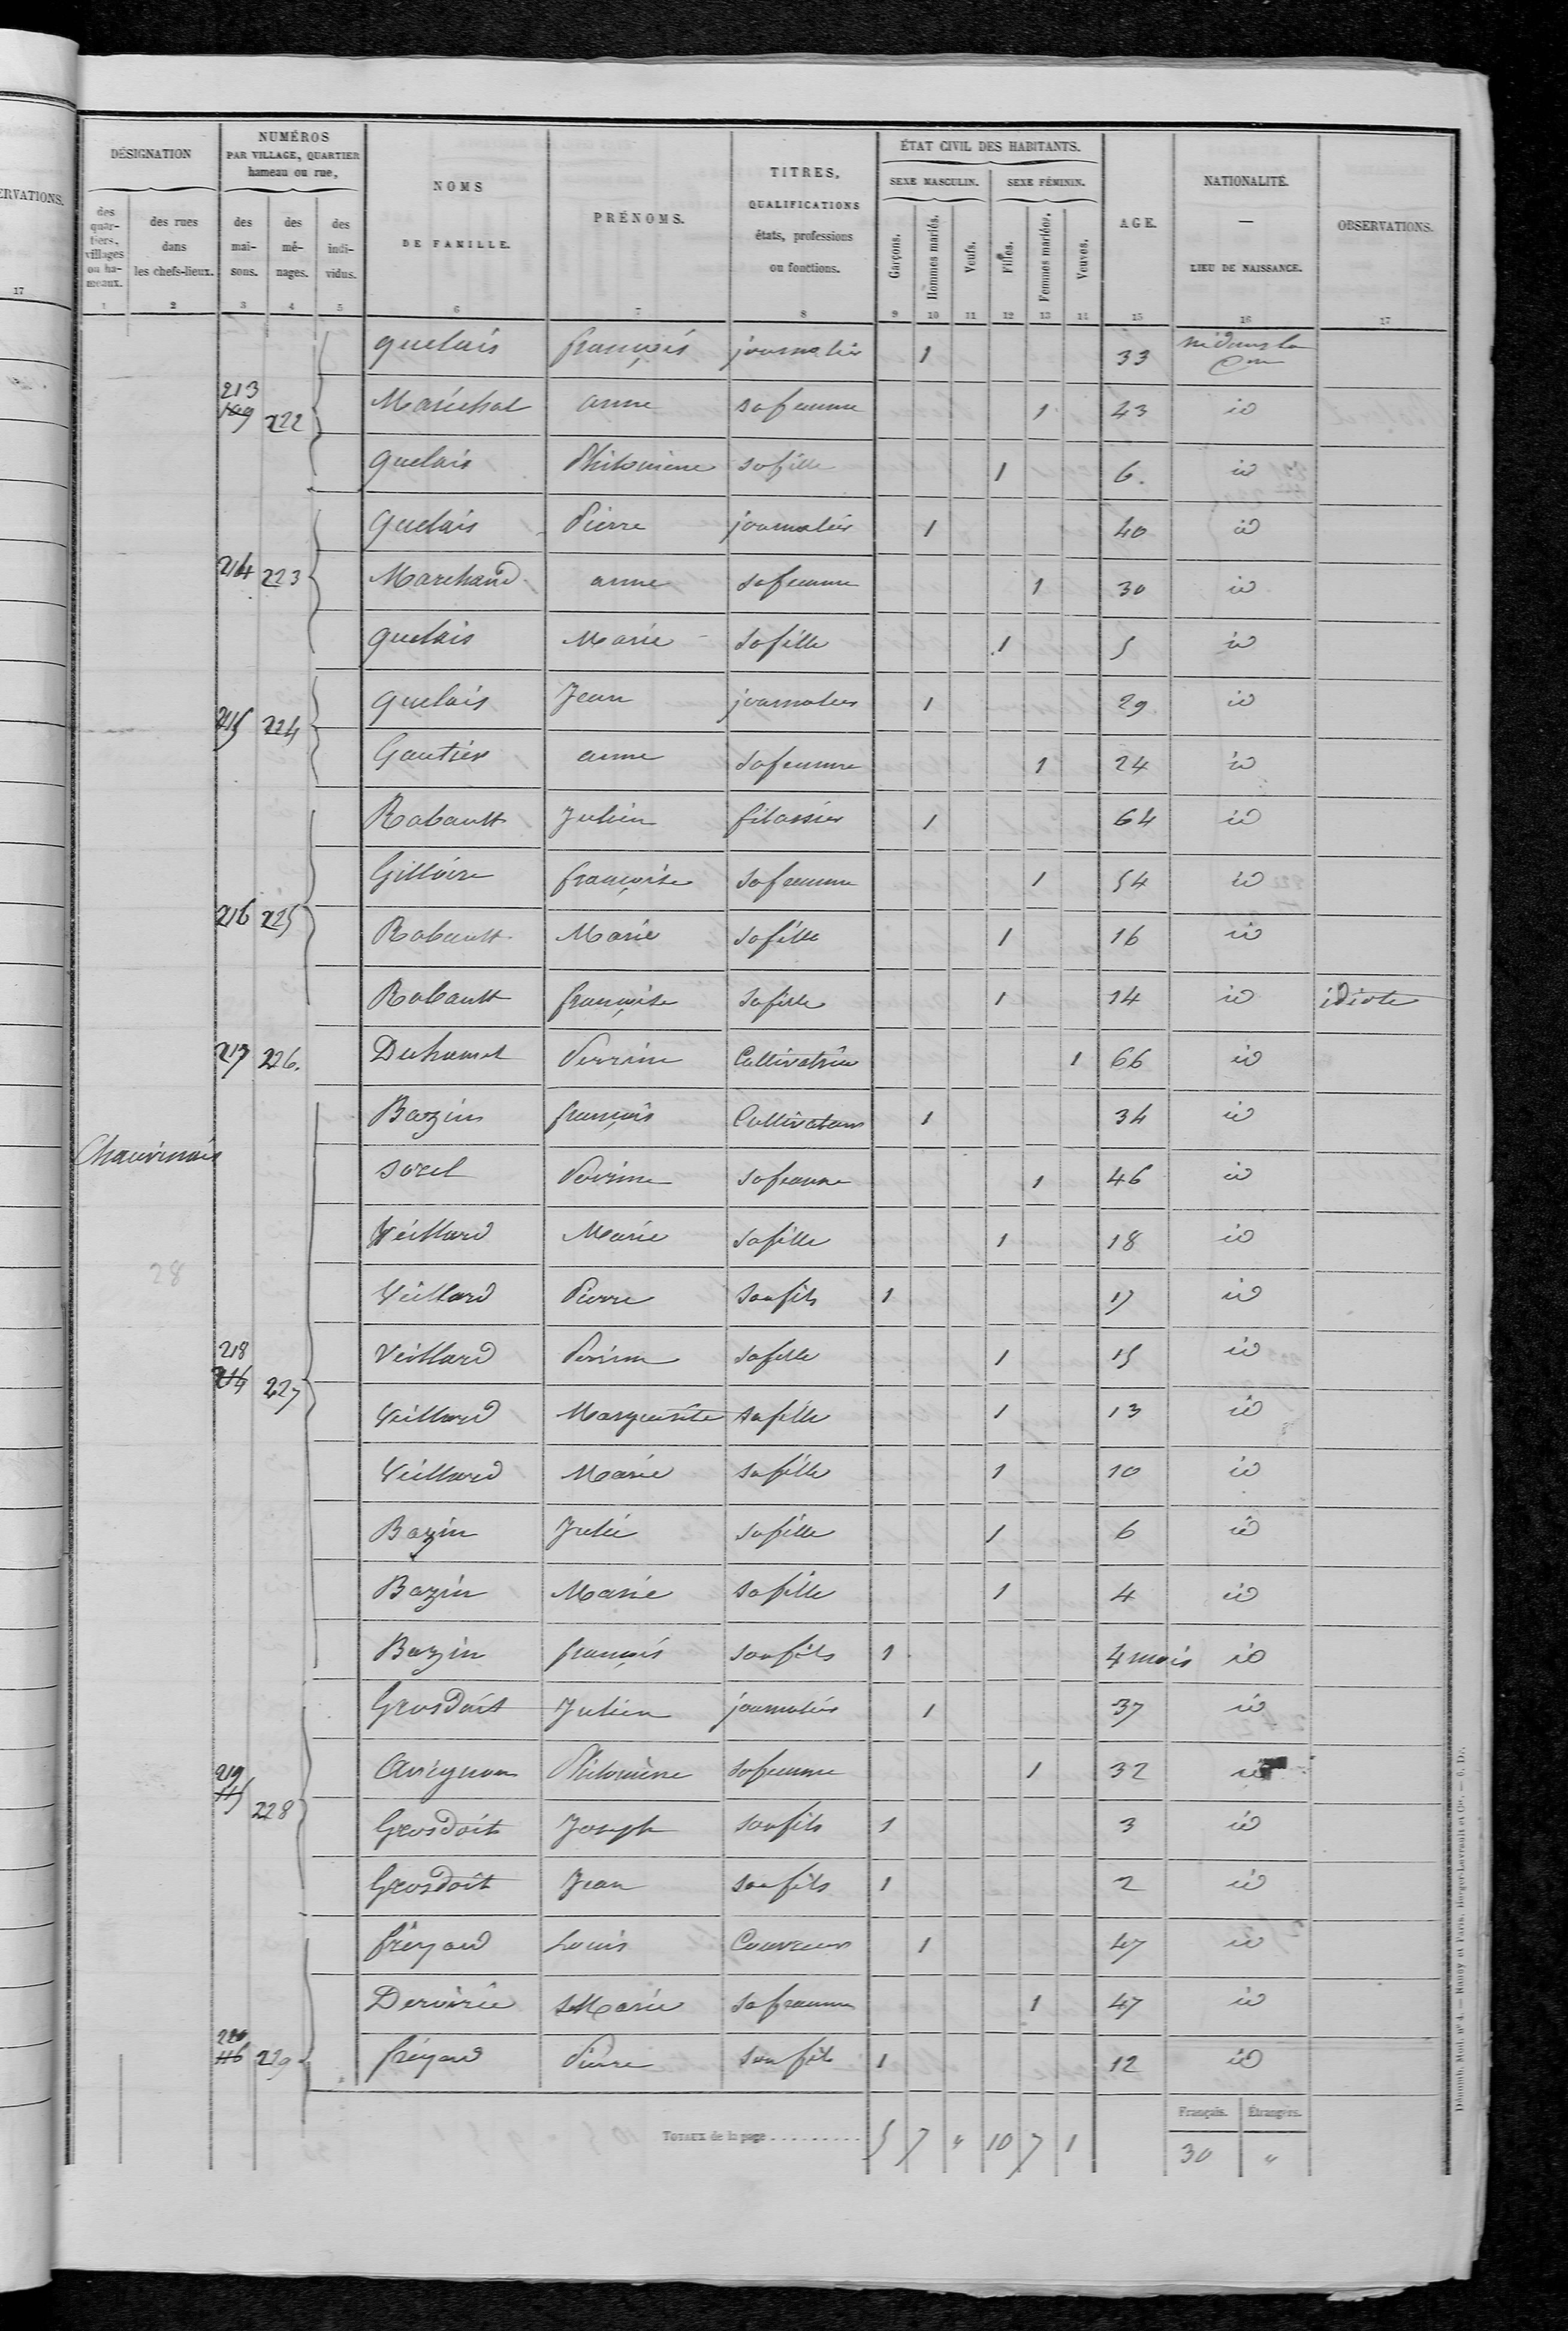 ERVATIONS.
17
DÉSIGNATION
NUMÉROS
PAR VILLAGE, QUARTIER
hameau ou rue,
des quar-tiers, villages ou ha-meaux.
des rues dans les chefs-lieux.
des mai-sons.
des mé-nages.
des indi-vidus.
NOMS
DE FAMILLE.
PRÉNOMS.
TITRES,
QUALIFICATIONS
états, professions
ou fonctions.
ÉTAT CIVIL DES HABITANTS.
SEXE MASCULIN. SEXE FÉMININ.
Garçons. Hommes mariés. Veufs. Filles. Femmes mariées. Veuves.
AGE.
NATIONALITÉ.
—
LIEU DE NAISSANCE.
OBSERVATIONS.
1 2 3 4 5 6 7 8 9 10 11 12 13 14 15 16 17
quelais françois journalier 1 33 né dans la Cne
213 222 Maréchal anne sa femme 1 43 id
quelais Philomène sa fille 1 6. id
quelais Pierre journalier 1 40 id
214 223 Marchand anne sa femme 1 30 id
quelais Marie sa fille 1 5 id
215 224 quelais Jean journalier 1 29 id
Gautier anne sa femme 1 24 id
Rabault Julien filassier 1 64 id
Gilloire françoise sa femme 1 54 id
216 225 Rabault Marie sa fille 1 16 id
Rabault françoise sa fille 1 14 id idiote
217 226. Duhamel Perrine Cultivatrice 1 66 id
Bazin françois Cultivateur 1 34 id
Chauvinais Sorel Perrine sa femme 1 46 id
Veillard Marie sa fille 1 18 id
28
Veillard Pierre son fils 1 17 id
218 227 Veillard Perrine sa fille 1 15 id
Veillard Marguerite sa fille 1 13 id
Veillard Marie sa fille 1 10 id
Bazin Julie sa fille 1 6 id
Bazin Marie sa fille 1 4 id
Bazin françois son fils 1 4 mois id
Grosdoit Julien journalier 1 37 id
219 228 Avignon Philomène sa femme 1 32 id
Grosdoit Joseph son fils 1 3 id
Grosdoit Jean son fils 1 2 id
fréyard Louis Couvreur 1 47 id
Marie sa femme 1 47 id
220 229 fréyard Pierre son fils 1 12 id
Français. Étrangers.
TOTAUX de la page ......... 5 7 " 10 7 1 30 "